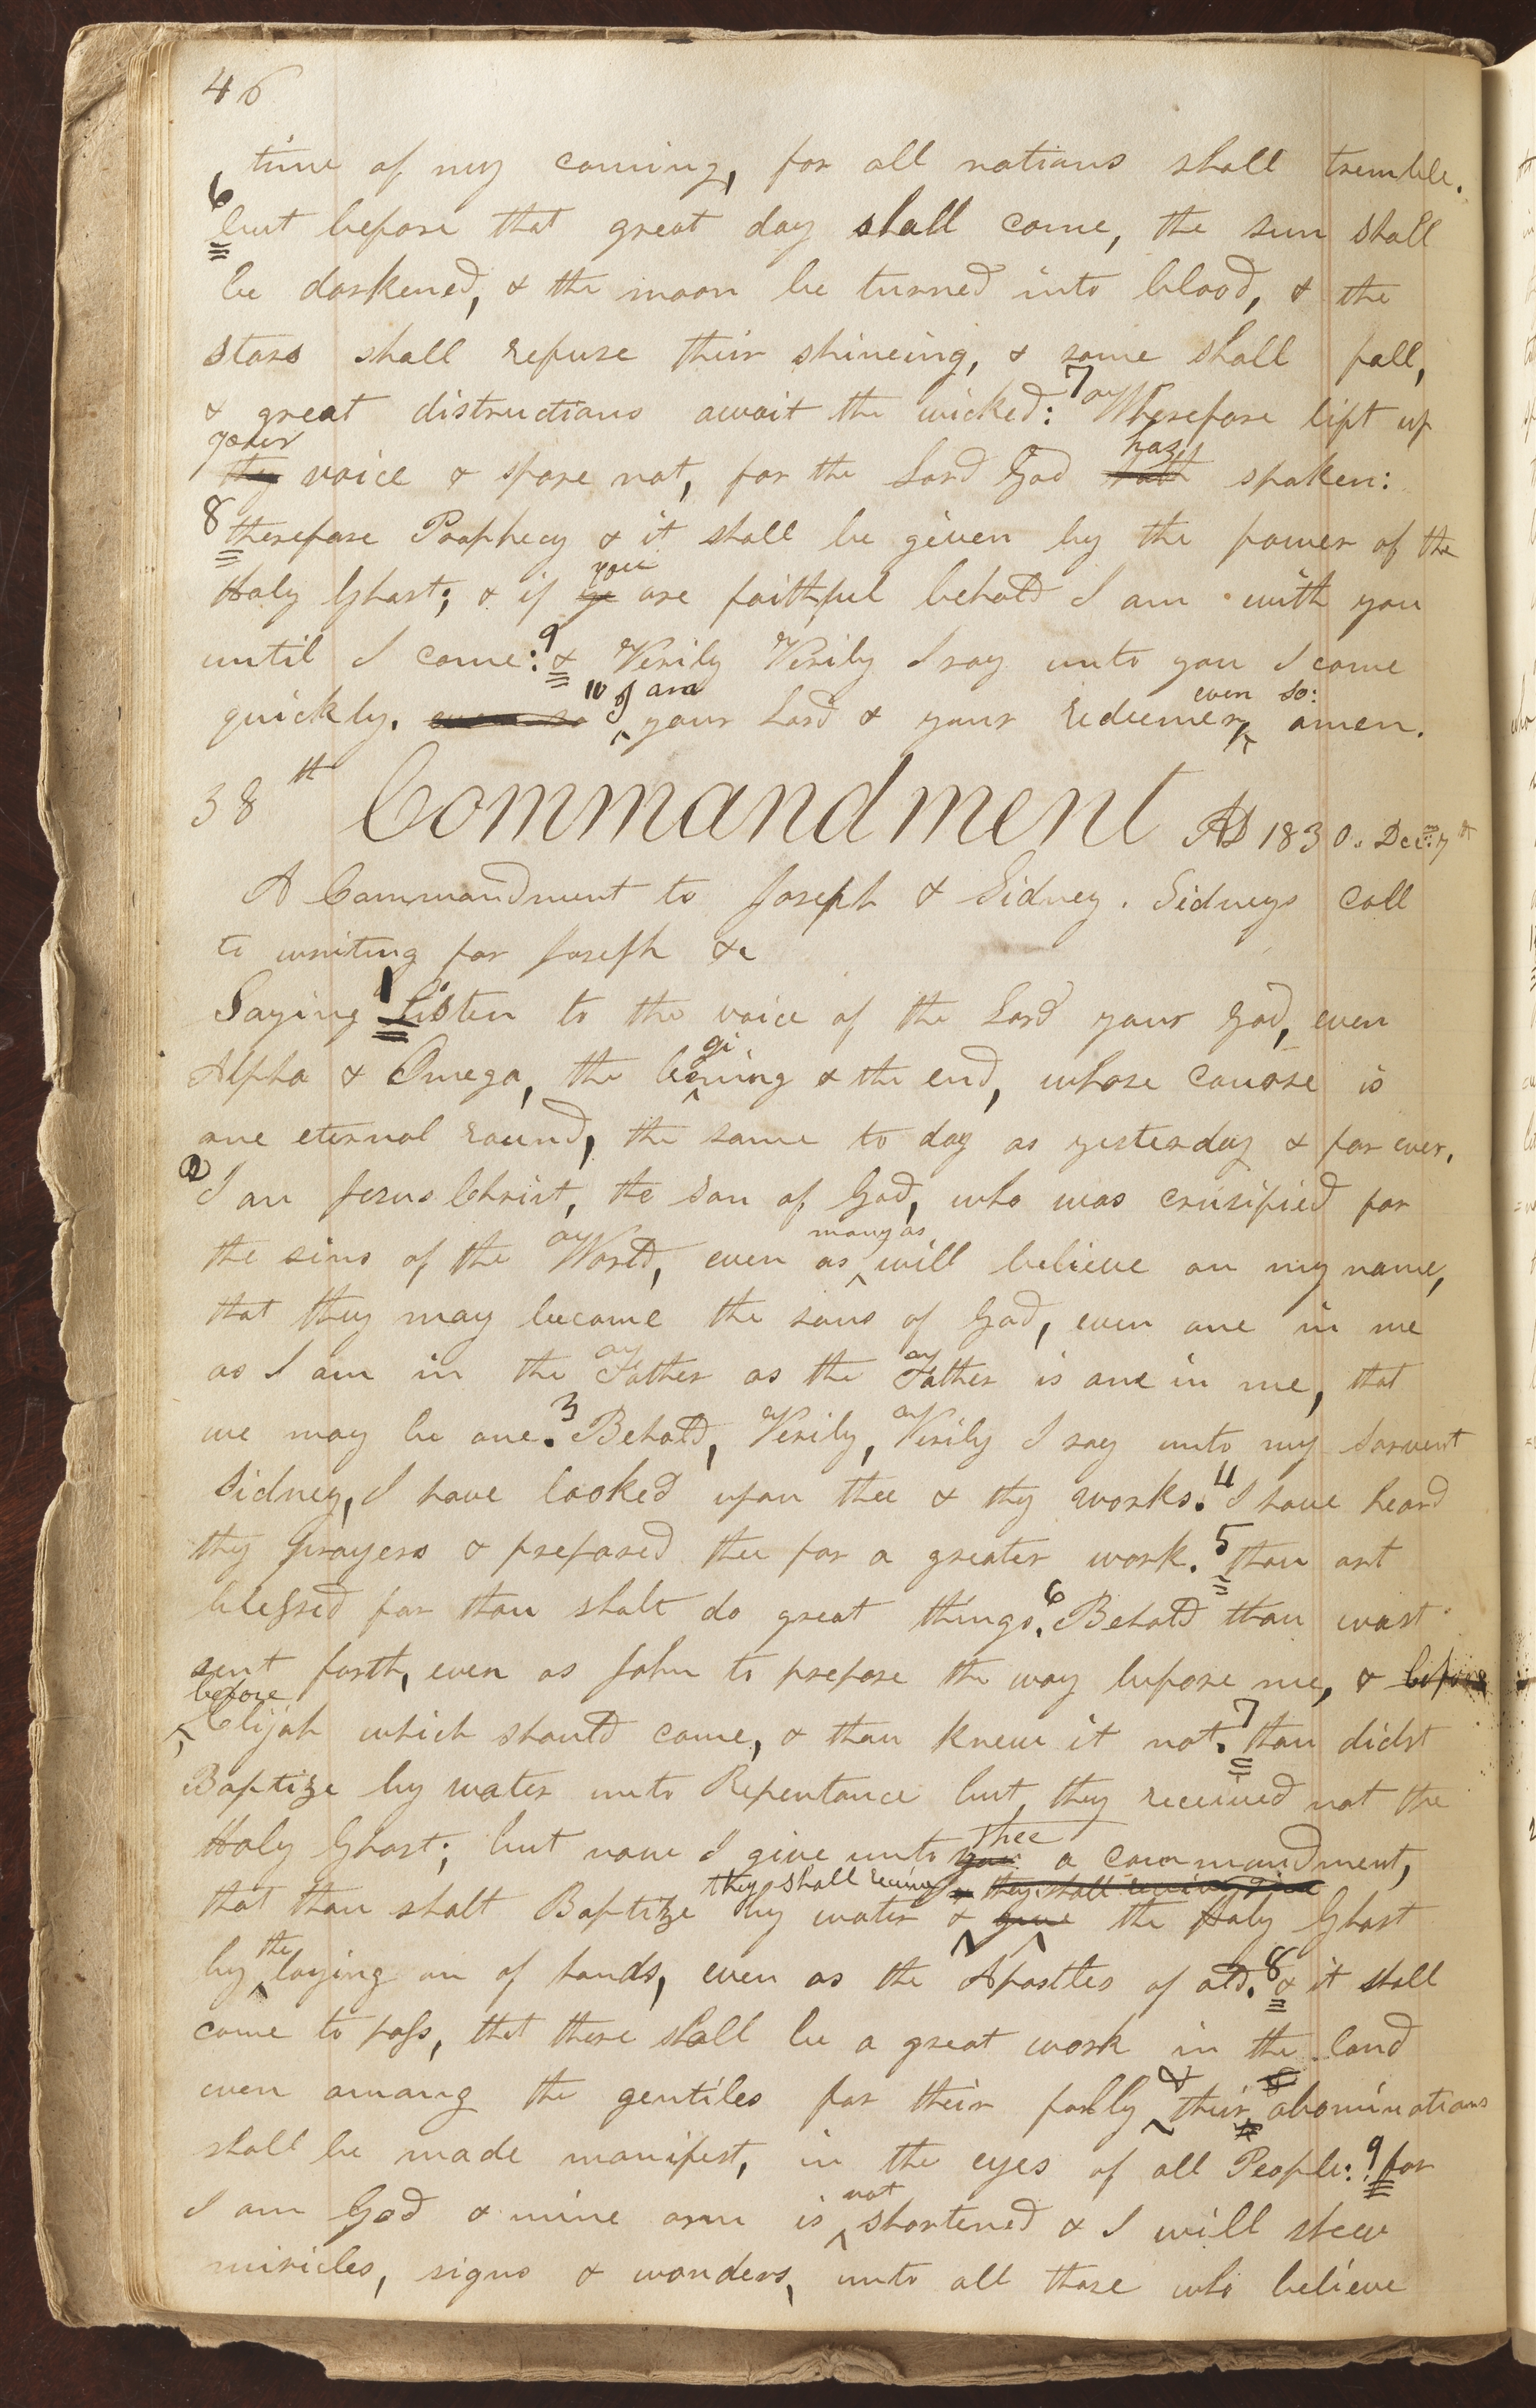 46
time of my coming, for all nations shall tremble.
6 but before that great day shall come, the sun shall
be darkened, & the moon be turned into blood, & the
stars shall refuse their shineing, & some shall fall,
& great distructions await the wicked: 7 Wherefore lift up
your
thy voice & spare not, for the Lord God hath has spoken:
8 therefore Prophecy & it shall be given by the power of the
Holy Ghost; & if ye you are faithful behold I am with you
until I come: 9 & Verily Verily I say unto you I come
quickly. even so 10 I am your Lord & your Redeemer, even so: amen.
38th Commandment AD 1830. Decm. 7th
A Commandment to Joseph & Sidney. Sidneys call
to writing for Joseph &c
Saying 1 Listen to the voice of the Lord your God, even
Alpha & Omega, the begining & the end, whose course is
one eternal round, the same to day as yesterday & for ever.
2 I am Jesus Christ, the Son of God, who was crusified for
the sins of the World, even as many as will believe on my name,
that they may become the sons of God, even one in me
as I am in the Father as the Father is one in me, that
we may be one. 3 Behold, Verily, Verily I say unto my Servent
Sidney, I have looked upon thee & thy works. 4 I have heard
thy prayers & prepared thee for a greater work. 5 thou art
blessed for thou shalt do great things. 6 Behold thou wast
sent forth, even as John to prepare the way before me, & before
before
Elijah which should come, & thou knew it not. 7 thou didst
Baptize by water unto Repentance but they received not the
Holy Ghost; but now I give unto you thee a commandment,
they shall receive they shall receive
that thou shalt Baptize by water & give the Holy Ghost
by the laying on of hands, even as the Apostles of old. 8 & it shall
come to pass, that there shall be a great work in the land
even among the gentiles for their folly & their abominations
shall be made manifest, in the eyes of all People: 9 for
I am God & mine arm is not shortened & I will shew
miricles, signs & wonders, unto all those who believe